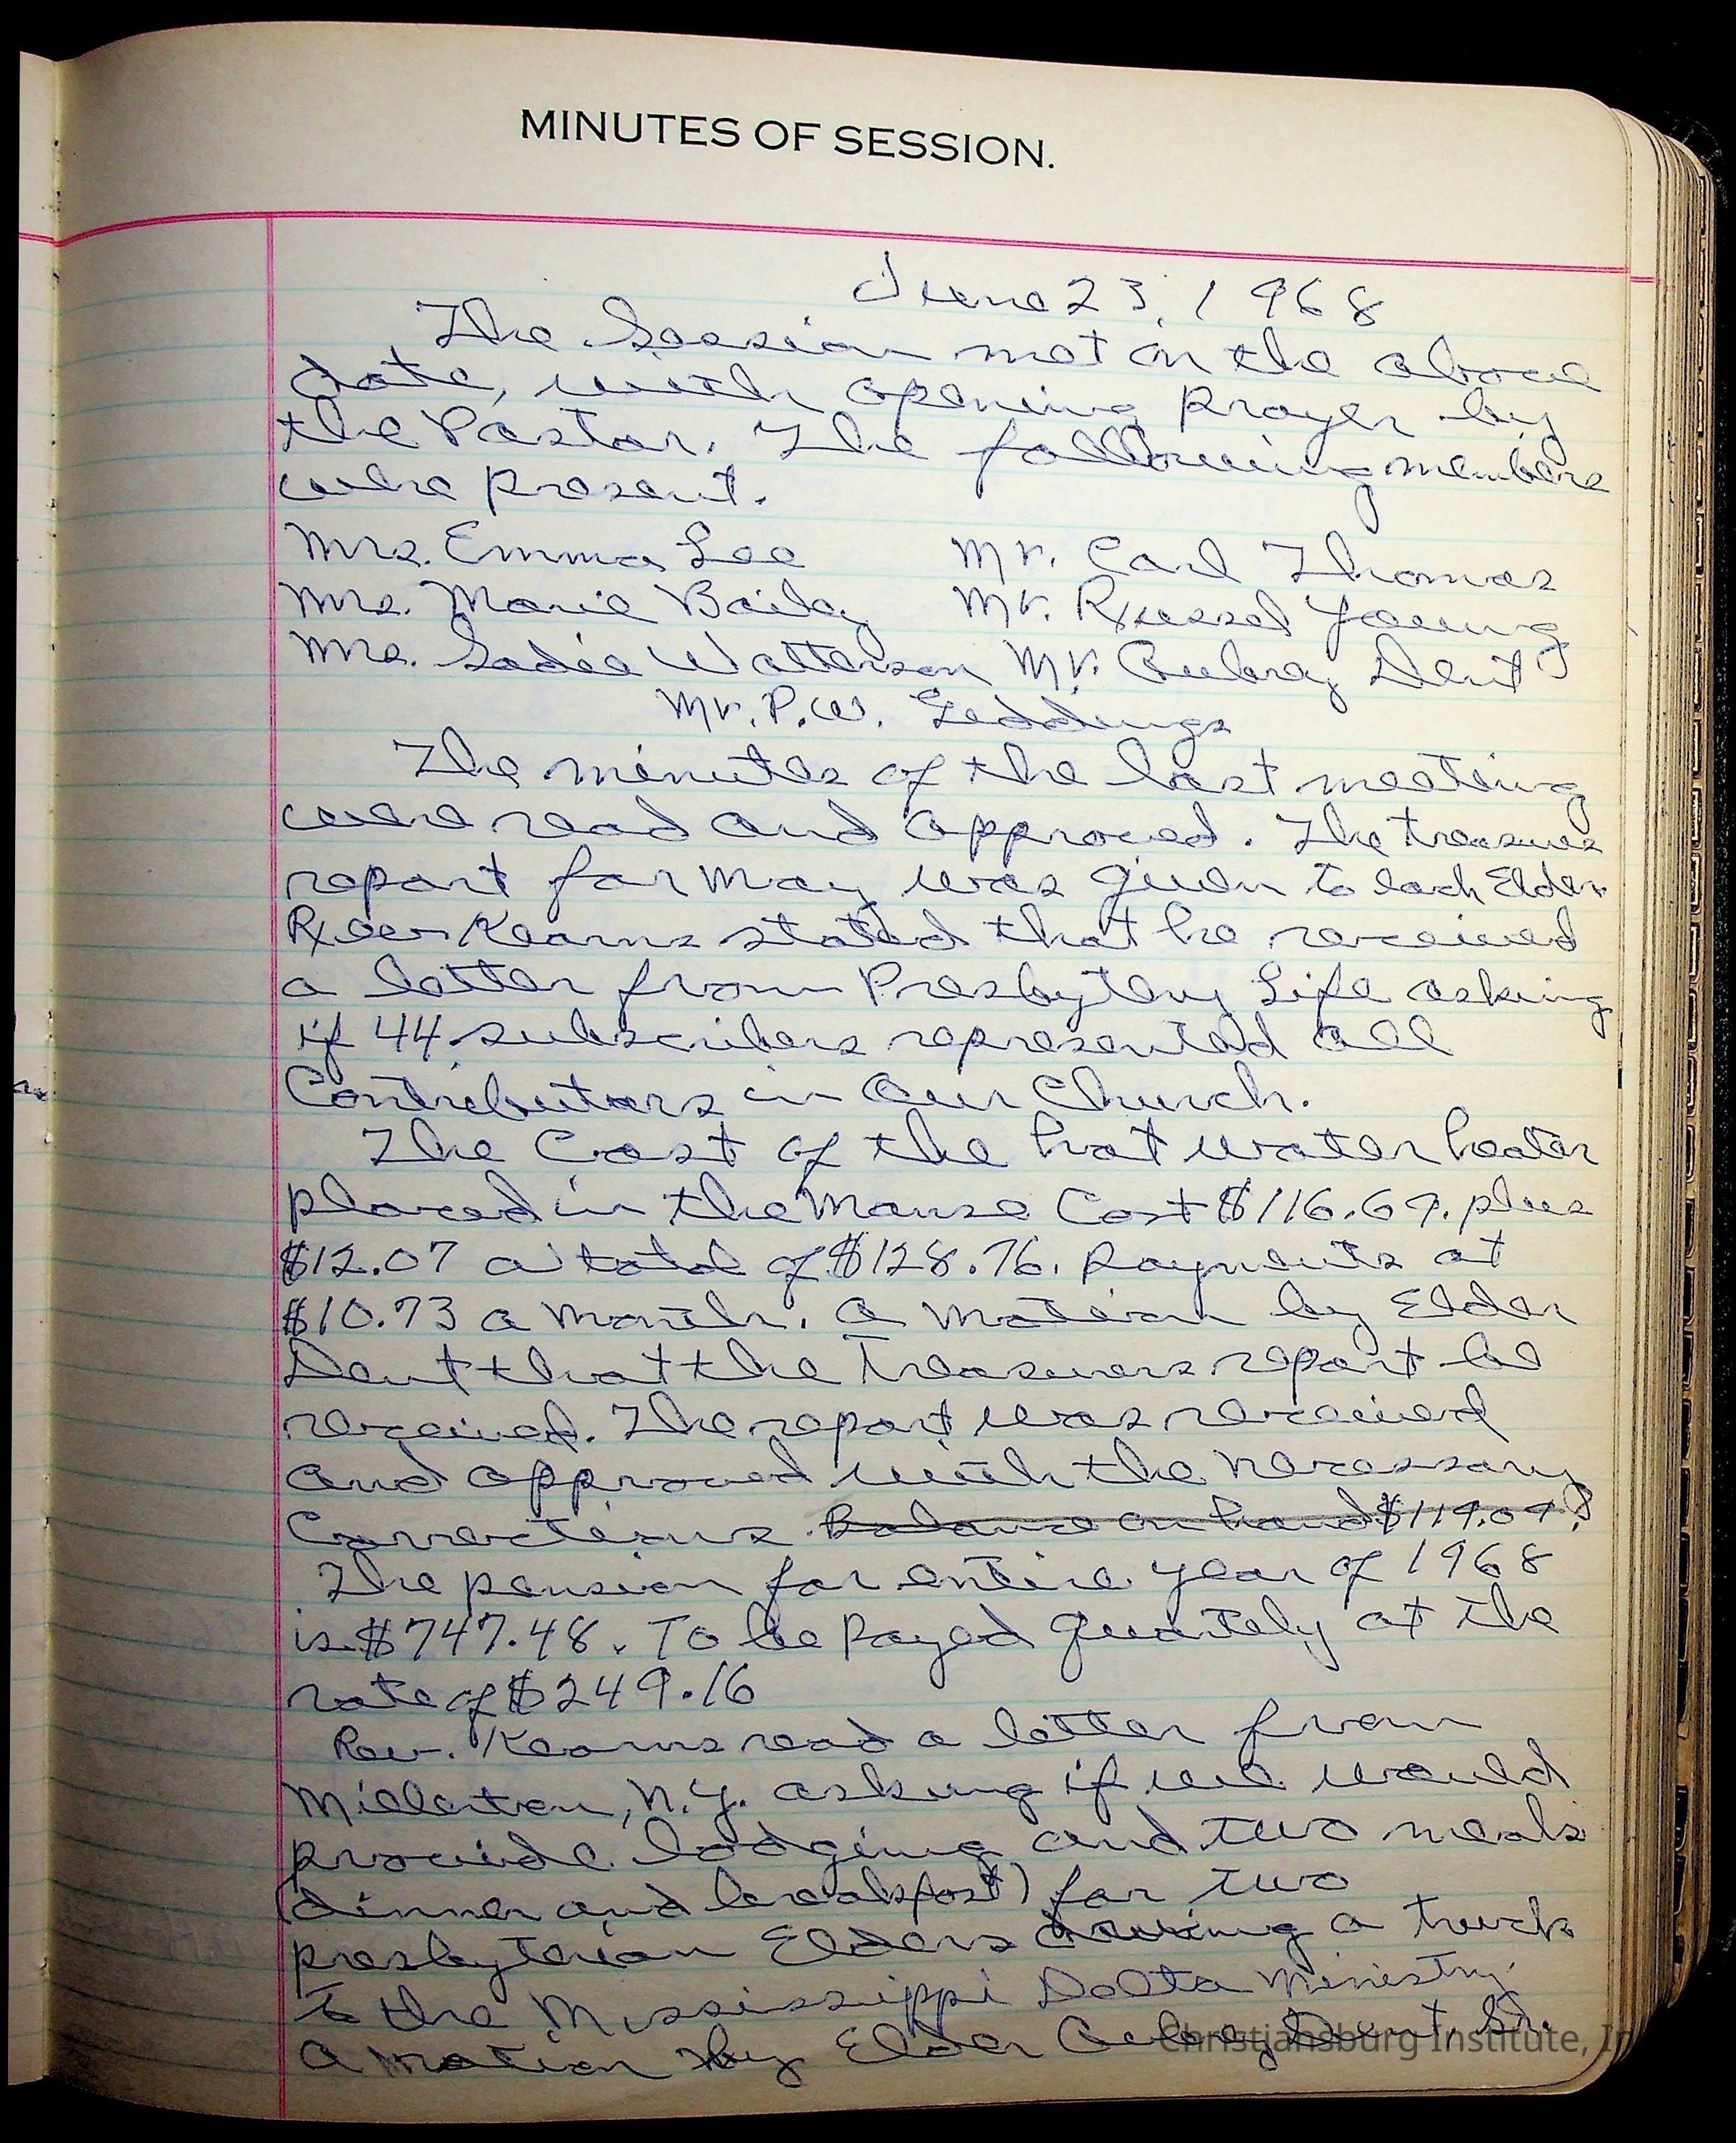 MINUTES OF SESSION.
June 23, 1968
The Session met on the above
date, with opening prayer by
the Pastor. The following members
were present.
Mrs. Emma Lee Mr. Carl Thomas
Mrs. Marie Baily Mr. Russel Young
Mrs. Sadie Watterson Mr. Aubrey Dent
Mr. P.W. Geddings
The minutes of the last meeting
were read and approved. The treasures
report for May was given to each Elder.
Rev Kearns stated that he received
a letter from Presbytery Life asking
if 44 subscribers represented all
Contributors in Our Church.
The Cost of the hot water heater
placed in the Manse Cost $116.69. plus
$12.07 a total of $128.76. payments at
$10.73 a month. A motion by Elder
Dent that the Treasurers report be
received. The report was received
and approved with the necessary
Corrections. Balance on hand $119.09?
The pension for entire year of 1968
is $747.48. To be Payed Quartely at the
rate of $249.16
Rev. Kearns read a letter from
Millerton, N.Y. asking if we would
provide lodging and two meals
(dinner and breakfast) for two
presbyterian Elders driving a truck
to the Mississippi Delta Ministry.
A motion by Elder Aubrey Dent, Sr.
Christiansburg Institute, In